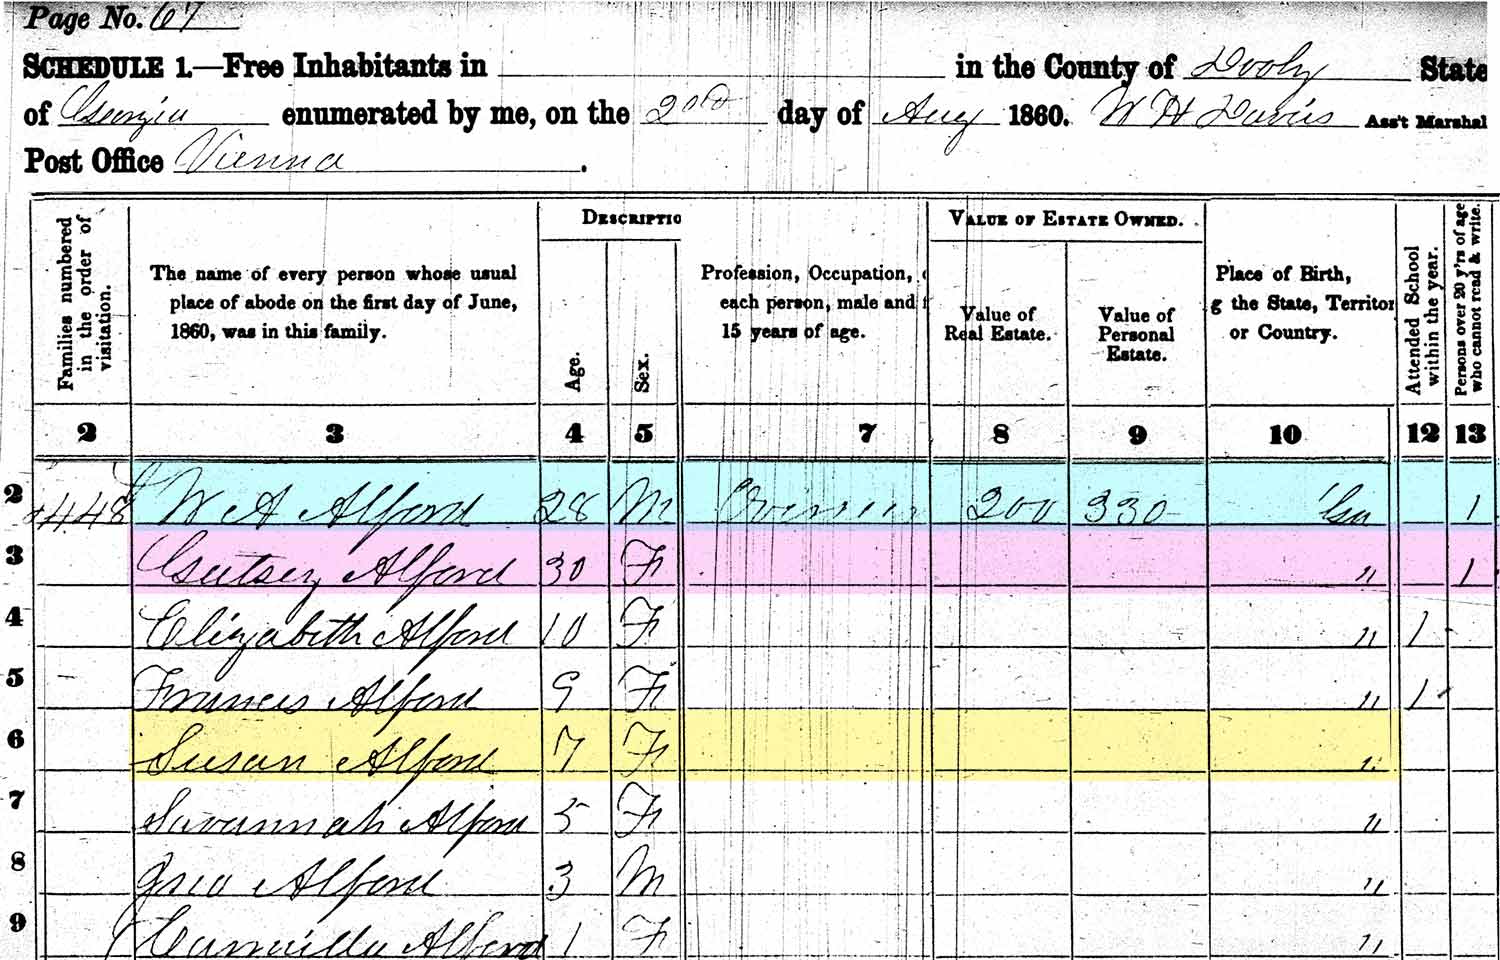 Page No. 67
SCHEDULE 1.—Free Inhabitants in in the County of Dooly State
of Georgia enumerated by me, on the 2nd day of Aug 1860. W H Davis Ass't Marshal
Post Office Vienna .
Families numbered in the order of visitation.
The name of every person whose usual place of abode on the first day of June, 1860, was in this family.
DESCRIPTIO
Age.
Sex.
Profession, Occupation,
each person, male and f
15 years of age.
VALUE OF ESTATE OWNED.
Value of Real Estate.
Value of Personal Estate.
Place of Birth,
g the State, Territor
or Country.
Attended School within the year.
Persons over 20 y'rs of age who cannot read & write.
2 3 4 5 7 8 9 10 12 13
2 448 W A Alford 28 M 200 330 Ga 1
3 Alford 30 F " 1
4 Elizabeth Alford 10 F " 1
5 Francis Alford 9 F " 1
6 Susan Alford 7 F "
7 Savannah Alford 5 F "
8 Alford 3 M "
9 Camilla Alford 1 F "